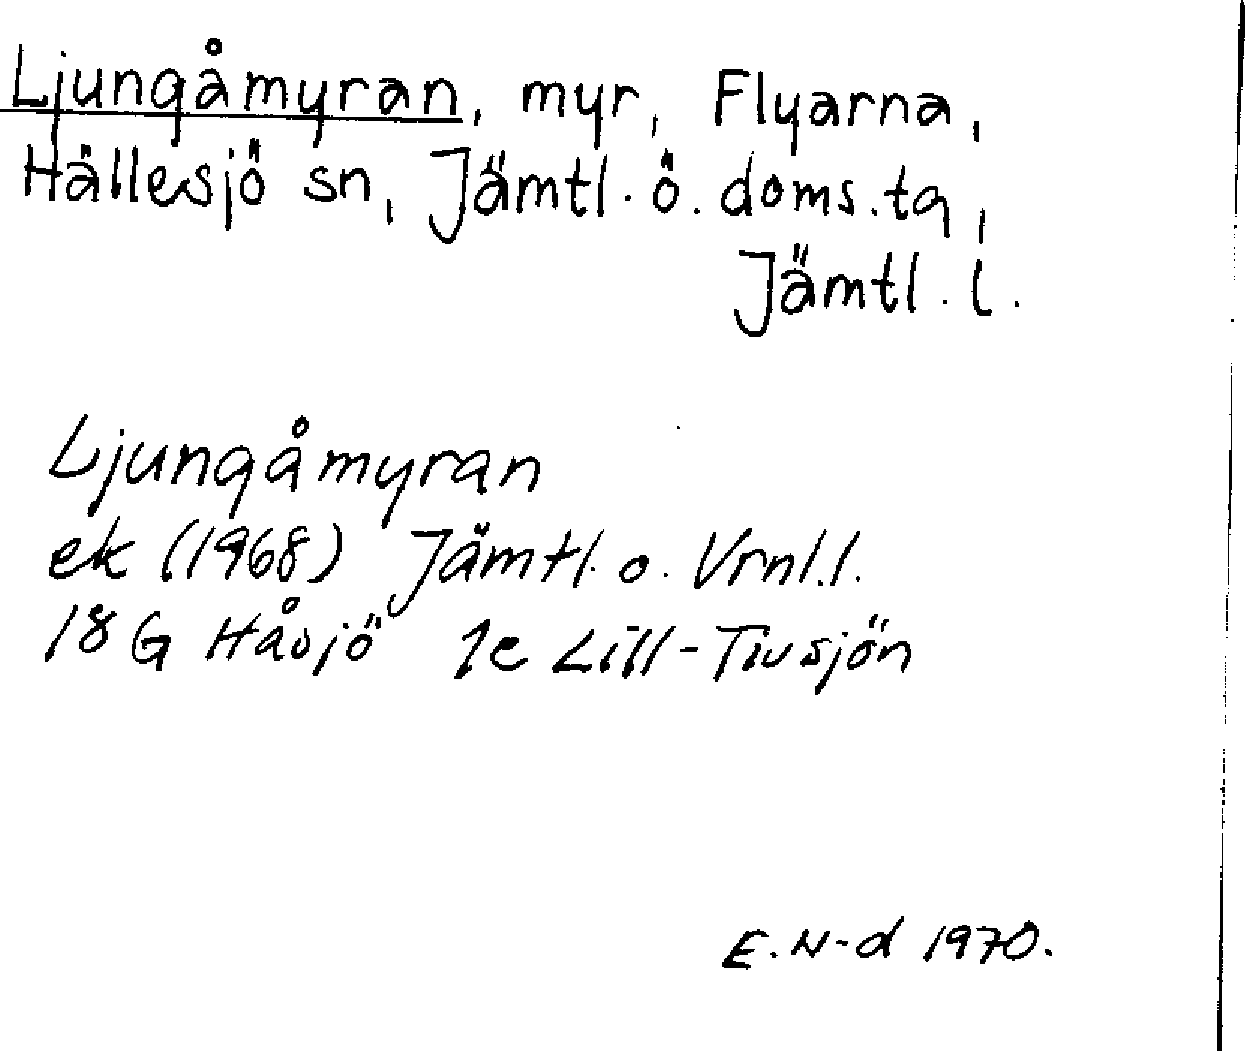 Ljungåmyran, myr, Flyarna,
Hällesjö sn, Jämtl. ö. doms.ta,
Jämtl. l.
Ljungåmyran
ek (1968) Jämtl. o. Vrnl.l.
18 G Håsjö 1e Lill-Tivsjön
E. N-d 1970.